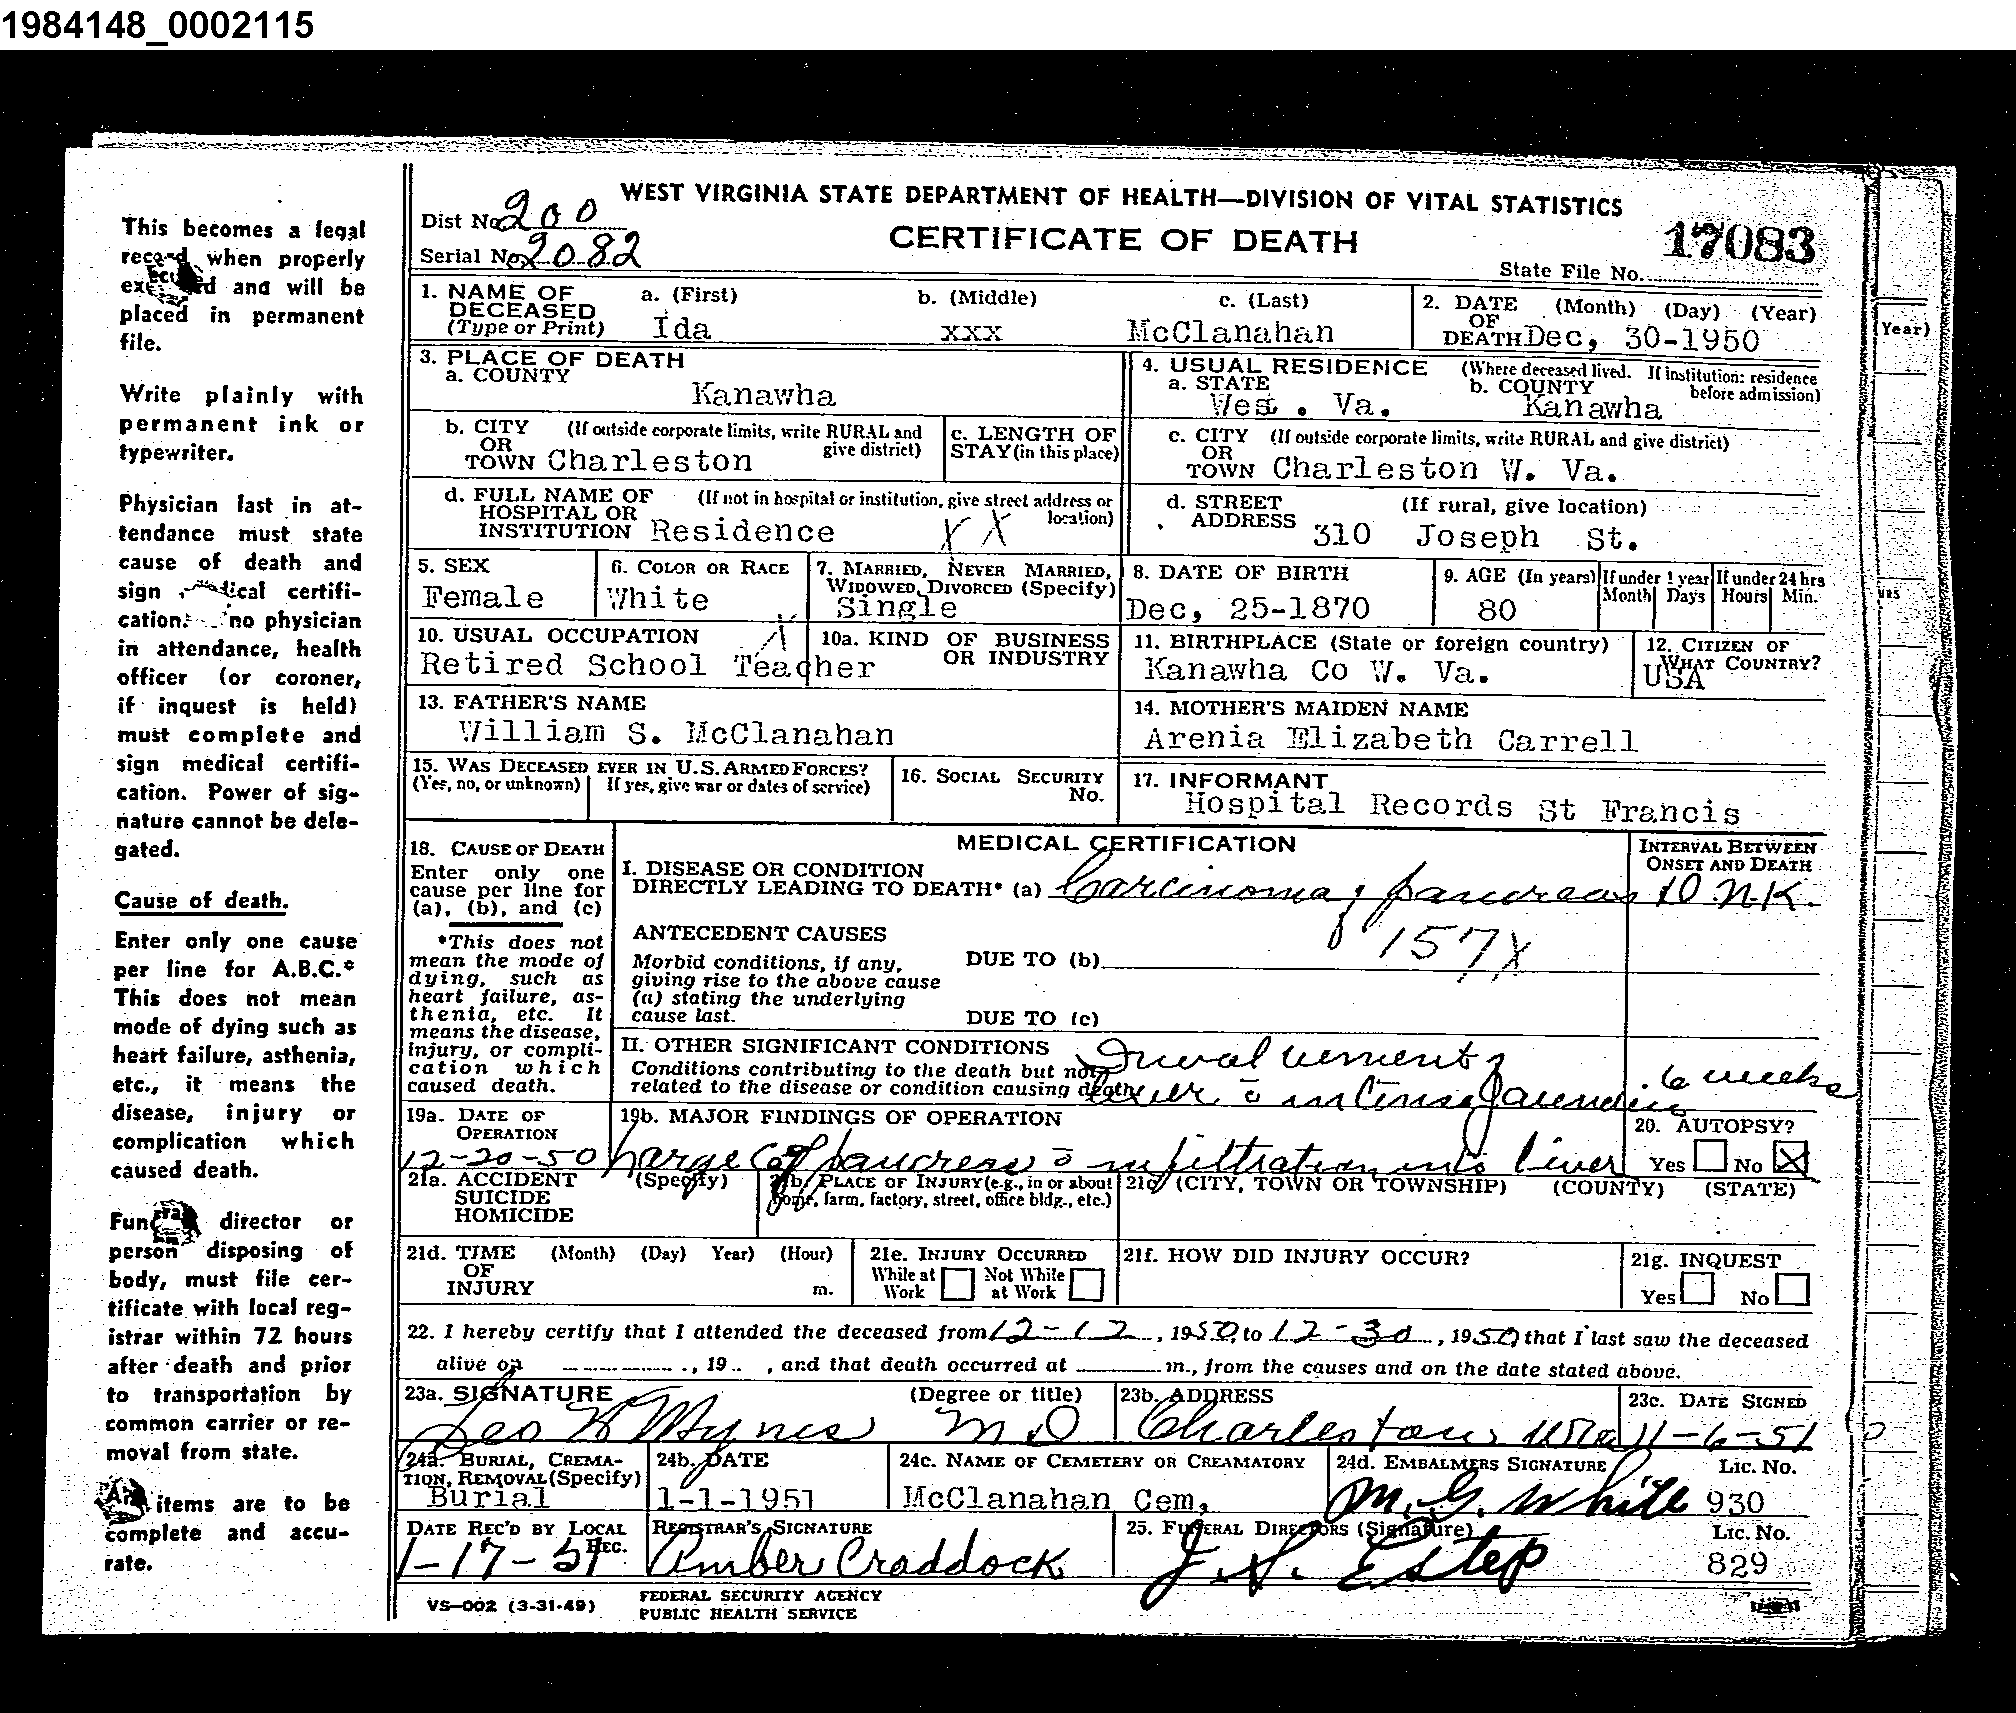 1984148_0002115
WEST VIRGINIA STATE DEPARTMENT OF HEALTH—DIVISION OF VITAL STATISTICS
CERTIFICATE OF DEATH
Dist No. 200
Serial No. 2082
17083
State File No.
1. NAME OF DECEASED (Type or Print) a. (First) b. (Middle) c. (Last)
Ida xxx McClanahan
2. DATE OF DEATH (Month) (Day) (Year)
Dec, 30-1950
(Year)
3. PLACE OF DEATH
a. COUNTY
Kanawha
4. USUAL RESIDENCE (Where deceased lived. If institution: residence before admission)
a. STATE b. COUNTY
Wes . Va. Kanawha
b. CITY OR TOWN (If outside corporate limits, write RURAL and give district)
Charleston
c. LENGTH OF STAY (in this place)
c. CITY OR TOWN (If outside corporate limits, write RURAL and give district)
Charleston W. Va.
d. FULL NAME OF HOSPITAL OR INSTITUTION (If not in hospital or institution, give street address or location)
Residence X X
d. STREET ADDRESS (If rural, give location)
310 Joseph St.
5. SEX
Female
6. COLOR OR RACE
White
7. MARRIED, NEVER MARRIED, WIDOWED, DIVORCED (Specify)
Single
8. DATE OF BIRTH
Dec, 25-1870
9. AGE (In years)
80
If under 1 year Month Days
If under 24 hrs Hours Min.
10. USUAL OCCUPATION X
Retired School Teacher
10a. KIND OF BUSINESS OR INDUSTRY
11. BIRTHPLACE (State or foreign country)
Kanawha Co W. Va.
12. CITIZEN OF WHAT COUNTRY?
USA
13. FATHER'S NAME
William S. McClanahan
14. MOTHER'S MAIDEN NAME
Arenia Elizabeth Carrell
15. WAS DECEASED EVER IN U.S. ARMED FORCES?
(Yes, no, or unknown) If yes, give war or dates of service)
16. SOCIAL SECURITY No.
17. INFORMANT
Hospital Records St Francis
18. CAUSE OF DEATH
Enter only one cause per line for (a), (b), and (c)
*This does not mean the mode of dying, such as heart failure, asthenia, etc. It means the disease, injury, or complication which caused death.
MEDICAL CERTIFICATION
INTERVAL BETWEEN ONSET AND DEATH
I. DISEASE OR CONDITION DIRECTLY LEADING TO DEATH* (a) Carcinoma of pancreas
N.K.
ANTECEDENT CAUSES
157X
Morbid conditions, if any, giving rise to the above cause (a) stating the underlying cause last.
DUE TO (b)
DUE TO (c)
II. OTHER SIGNIFICANT CONDITIONS
Conditions contributing to the death but not related to the disease or condition causing death.
Involvement of
liver c̄ intense jaundice
6 weeks
19a. DATE OF OPERATION
12-20-50
19b. MAJOR FINDINGS OF OPERATION
Large Ca of pancreas c̄ infiltration into liver
20. AUTOPSY?
Yes No X
21a. ACCIDENT SUICIDE HOMICIDE (Specify)
21b. PLACE OF INJURY (e.g., in or about home, farm, factory, street, office bldg., etc.)
21c. (CITY, TOWN OR TOWNSHIP) (COUNTY) (STATE)
21d. TIME OF INJURY (Month) (Day) Year) (Hour) m.
21e. INJURY OCCURRED
While at Work Not While at Work
21f. HOW DID INJURY OCCUR?
21g. INQUEST
Yes No
22. I hereby certify that I attended the deceased from 12-12, 1950, to 12-30, 1950, that I last saw the deceased
alive on , 19 , and that death occurred at m., from the causes and on the date stated above.
23a. SIGNATURE (Degree or title)
M D
23b. ADDRESS
Charleston, W Va
23c. DATE SIGNED
11-6-51
24a. BURIAL, CREMATION, REMOVAL (Specify)
Burial
24b. DATE
1-1-1951
24c. NAME OF CEMETERY OR CREAMATORY
McClanahan Cem,
24d. EMBALMERS SIGNATURE Lic. No.
M. G. White 930
DATE REC'D BY LOCAL REC.
1-17-51
REGISTRAR'S SIGNATURE
Amber Craddock
25. FUNERAL DIRECTORS (Signature) Lic. No.
J. S. Estep 829
VS-002 (3-31-49)
FEDERAL SECURITY AGENCY
PUBLIC HEALTH SERVICE
This becomes a legal
record when properly
executed and will be
placed in permanent
file.
Write plainly with
permanent ink or
typewriter.
Physician last in at-
tendance must state
cause of death and
sign medical certifi-
cation. no physician
in attendance, health
officer (or coroner,
if inquest is held)
must complete and
sign medical certifi-
cation. Power of sig-
nature cannot be dele-
gated.
Cause of death.
Enter only one cause
per line for A.B.C.*
This does not mean
mode of dying such as
heart failure, asthenia,
etc., it means the
disease, injury or
complication which
caused death.
Funeral director or
person disposing of
body, must file cer-
tificate with local reg-
istrar within 72 hours
after death and prior
to transportation by
common carrier or re-
moval from state.
All items are to be
complete and accu-
rate.